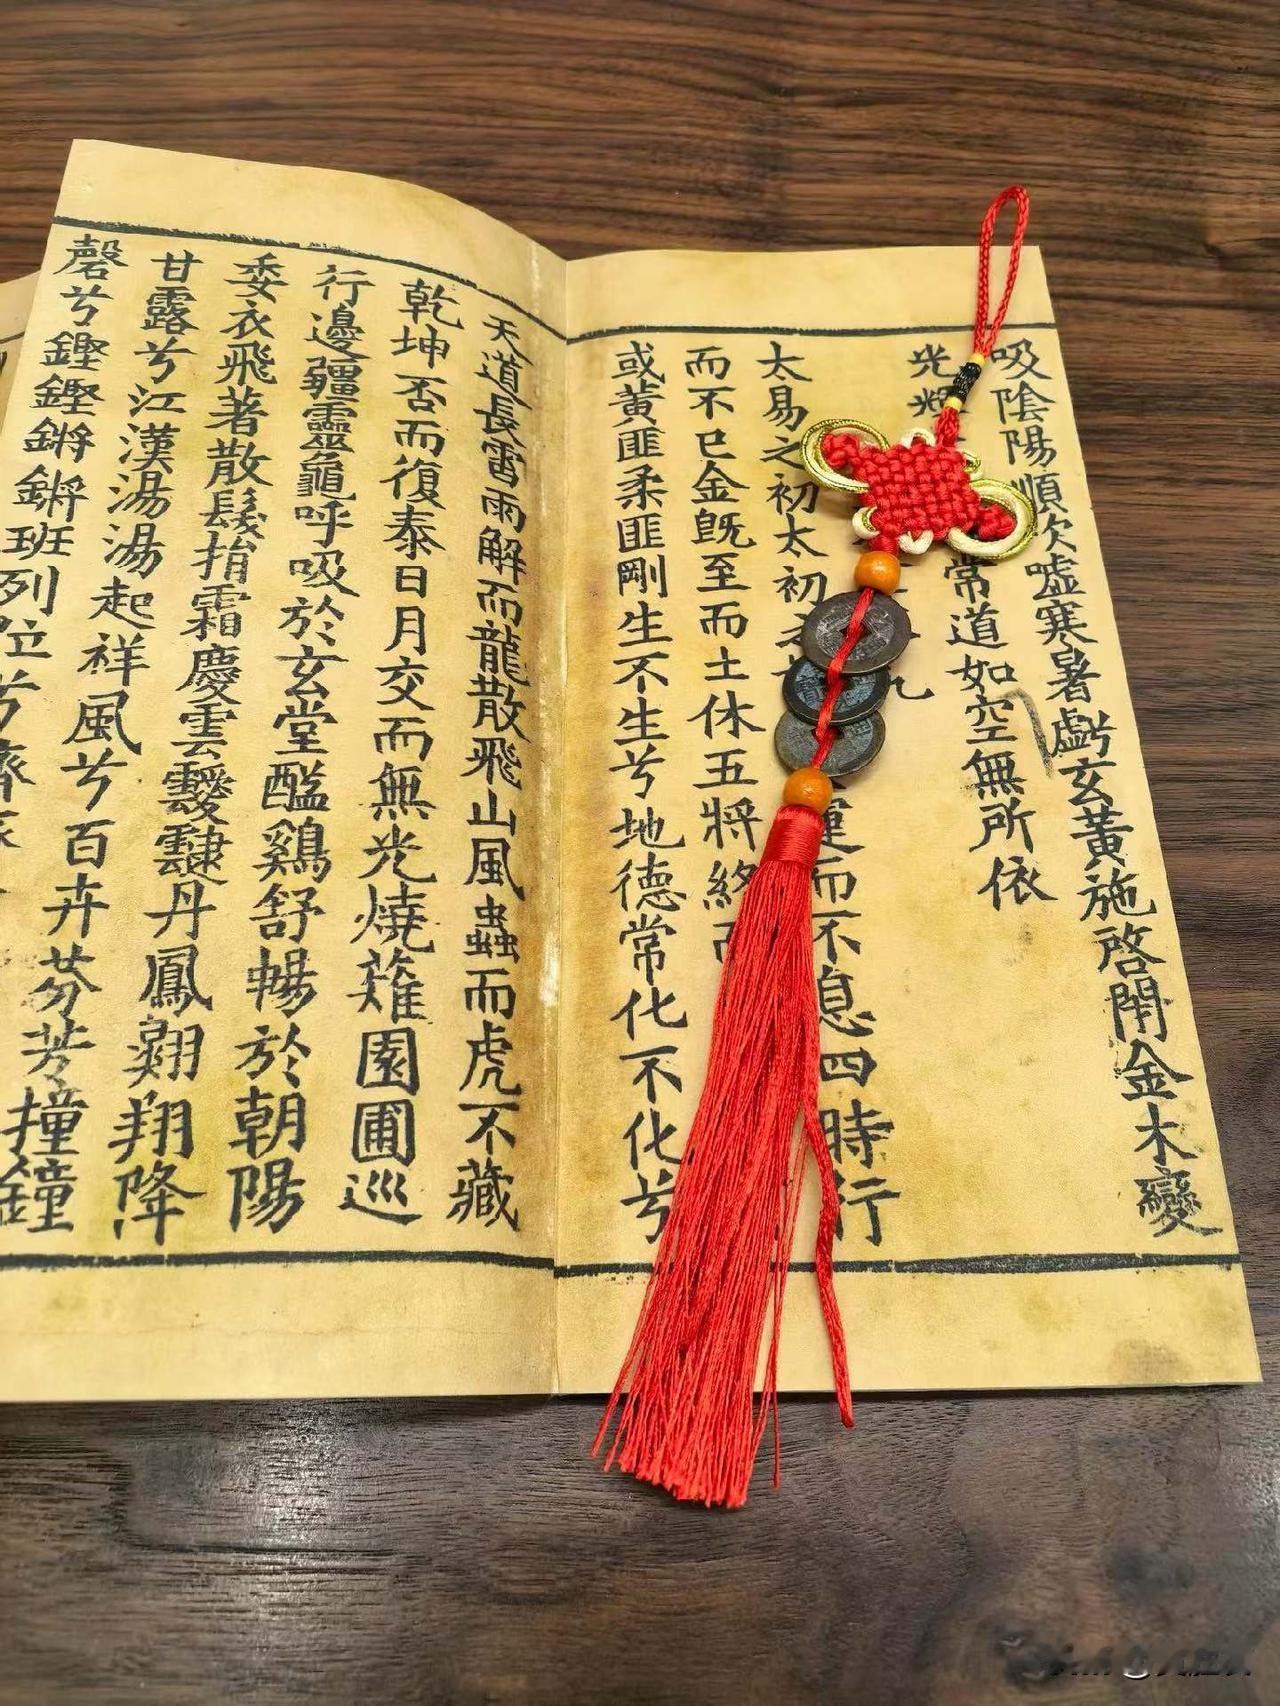 吸陰陽順次噓寒暑虧玄黃施啓閉金木變
常道如空無所依
光
太易之初太初運而不息四時行
而不已金既至而土休五將終而
或黃匪柔匪剛生不生兮地德常化不化兮
天道長雷雨解而龍散飛山風蟲而虎不藏
乾坤否而復泰日月交而無光燒薙園圃巡
行邊疆靈龜呼吸於玄堂醯鷄舒暢於朝陽
委衣飛著散髮揹霜慶雲靉靆丹鳳翱翔降
甘露兮江漢湯湯起祥風兮百卉芬芳撞鐘
磬兮鏗鏗鏘鏘班列位兮